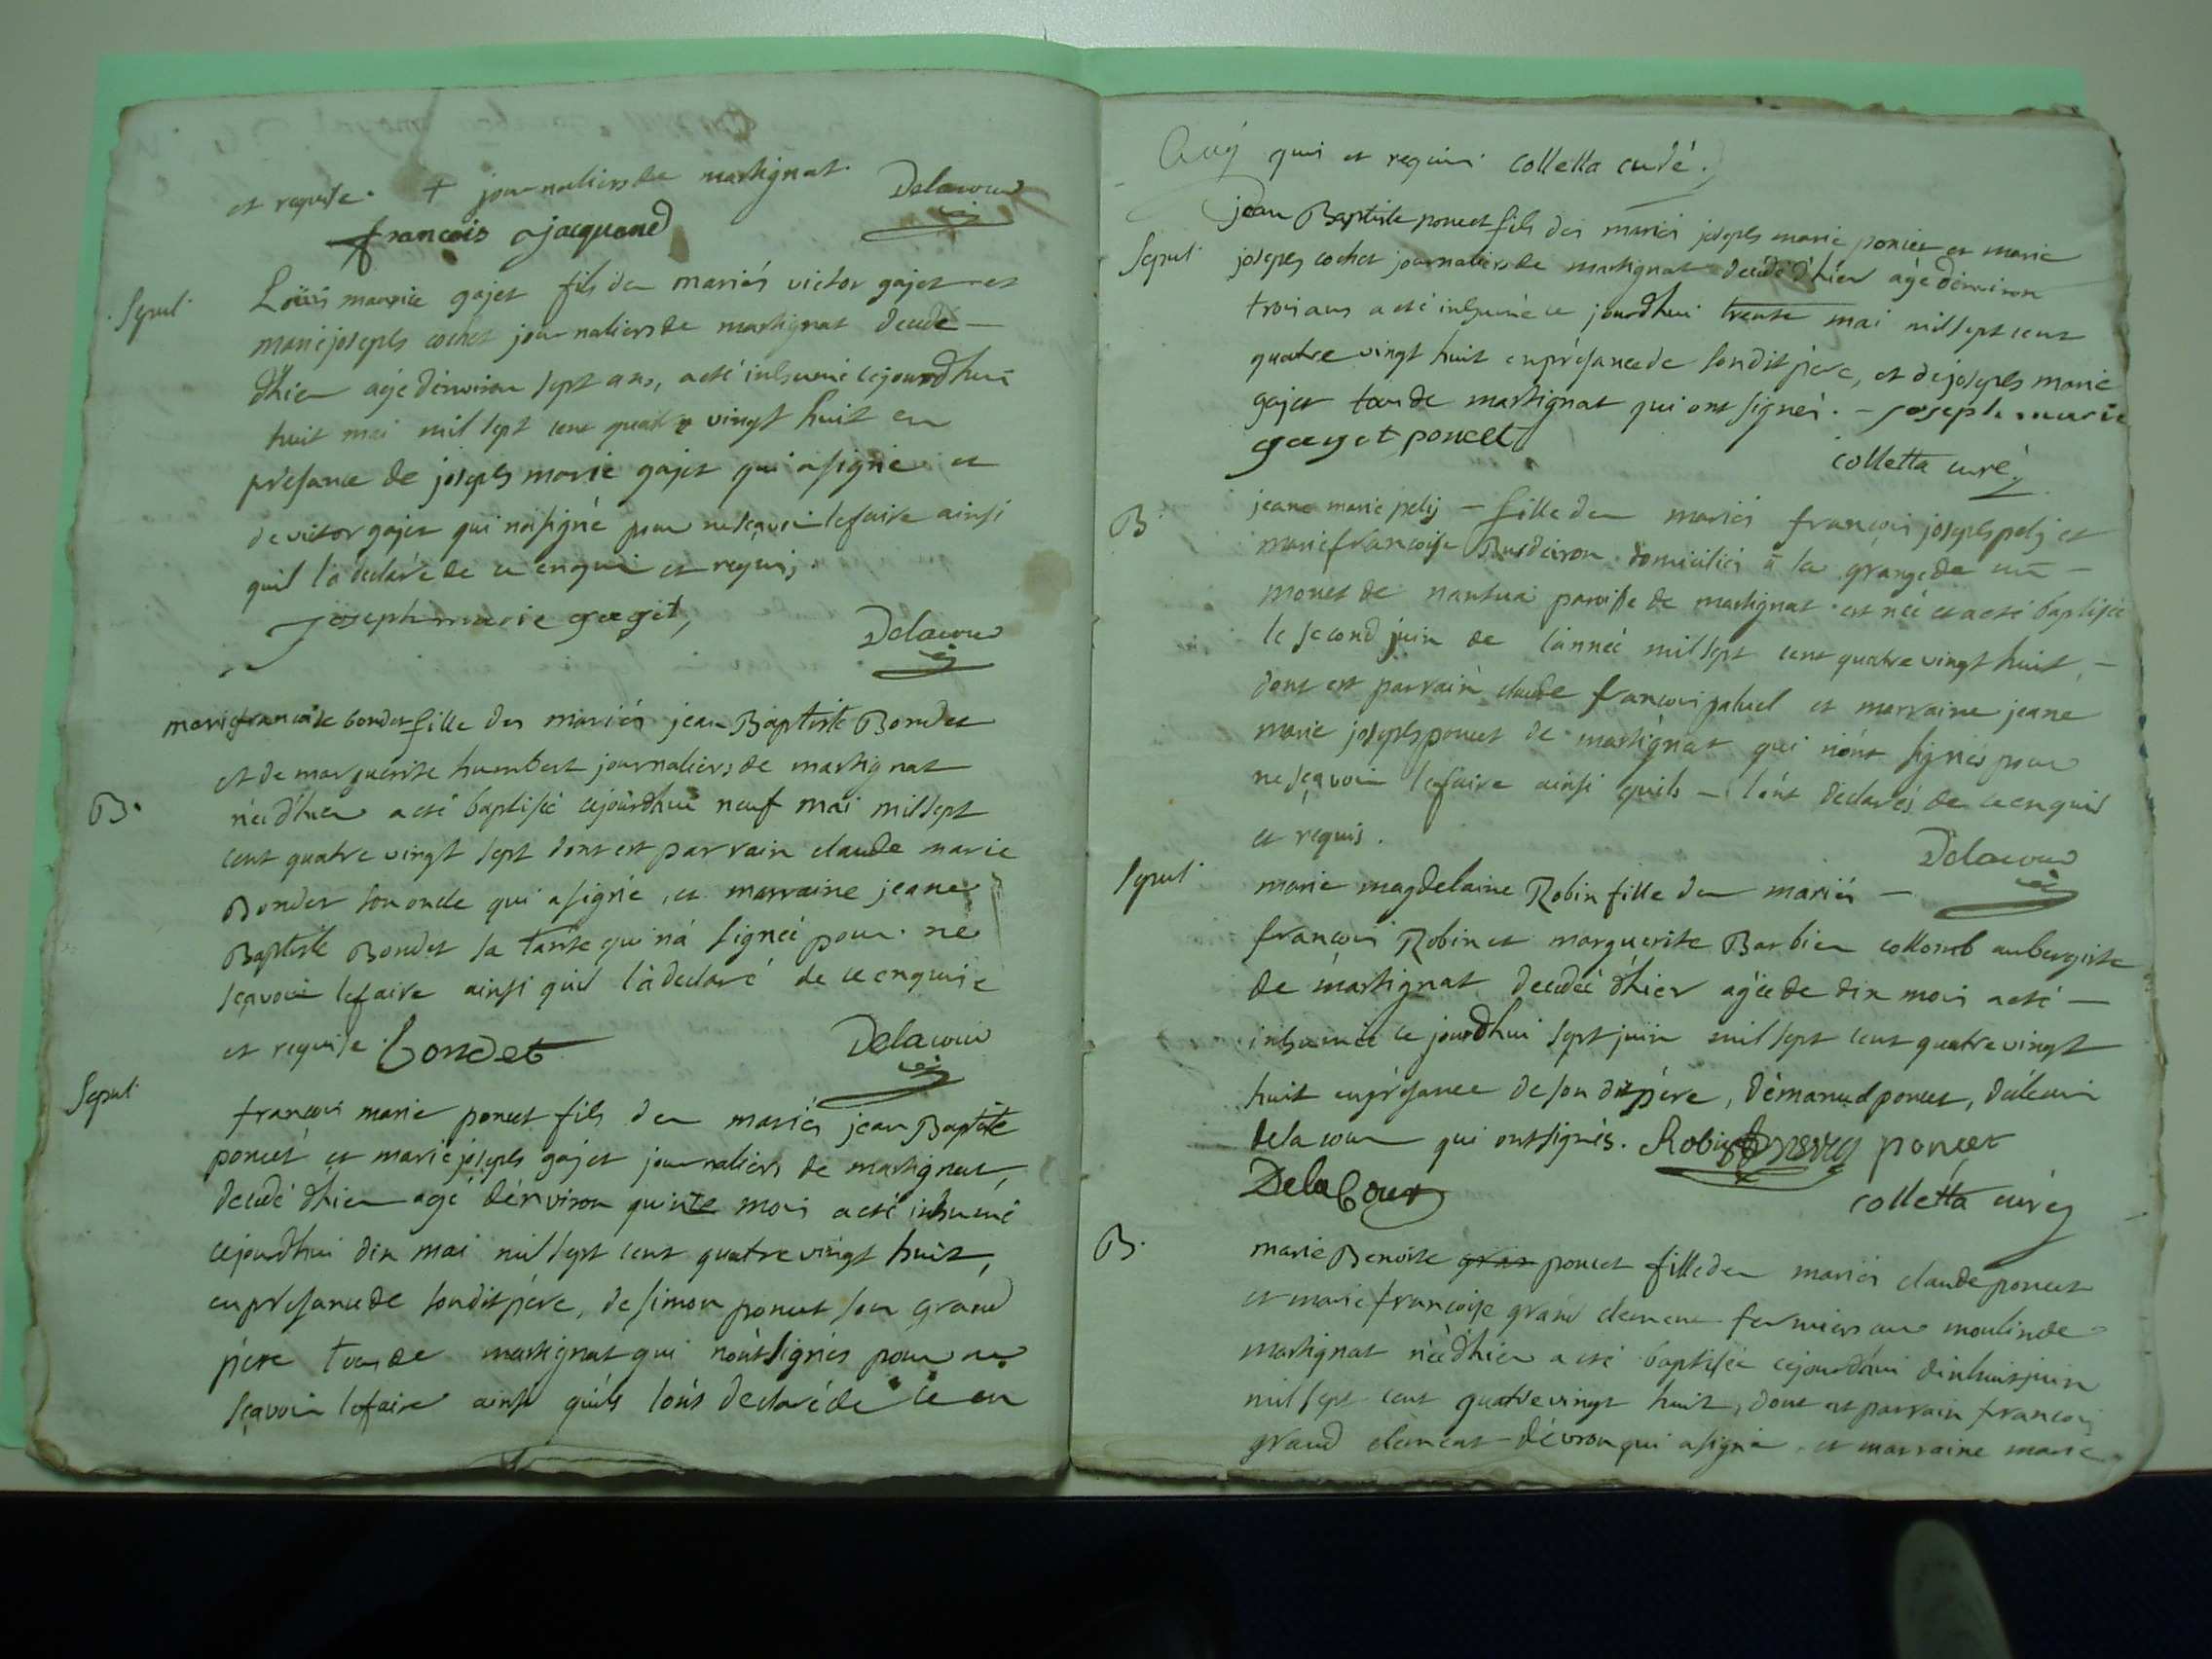 et requise. + journaliers de martignat.
Delacour
françois ajacquand
Sepul
Loüis maurice gajet fils des mariés victor gajet et
marie joseph cochet journaliers de martignat decede —
dhier agé denviron sept ans, a eté inhumé cejourdhui
huit mai mil sept cent quatre vingt huit en
présance de joseph marie gajet qui a signé et
de victor gajet qui n'a signé pour ne sçavoir le faire ainsi
quil l'a declaré de ce enquis et requis.
joseph marie gaget,
Delacour
marie francoise bondet fille des mariés jean Baptiste Bondet
et de marguerite humbert journaliers de martignat
B.
née dhier a eté baptisée cejourdhui neuf mai mil sept
cent quatre vingt sept dont est parrain claude marie
Bondet son oncle qui a signé, et marraine jeane
Baptiste Bondet sa tante qui n'a signée pour ne
sçavoir le faire ainsi quil l'a declaré de ce enquise
et requise. bondet
Delacour
Sepul
françois marie poncet fils des mariés jean Baptiste
poncet et marie joseph gajet journaliers de martignat,
decedé dhier agé dénviron quinze mois a eté inhumé
cejourdhui dix mai mil sept cent quatre vingt huit,
en présance de sondit pére, de simon poncet son grand
pére tous de martignat qui n'ont signés pour ne
sçavoir le faire ainsi quils l'ont declaré de ce en
quis et requis colletta curé.
jean Baptiste poncet fils des mariés joseph marie poncet et marie
Sepul
joseph cochet journaliers de martignat decedé dhier agé dénviron
trois ans a eté inhumé ce jourdhui trente mai mil sept cent
quatre vingt huit en présance de sondit pére, et de joseph marie
gajet tous de martignat qui ont signés. — joseph marie
gaget poncet
colletta curé
B
jeane marie pelij — fille des mariés françois joseph pelij et
marie françoise domiciliés à la grange de —
de nantua paroisse de martignat est née et a eté baptisée
le second juin de l'année mil sept cent quatre vingt huit, —
dont est parrain claude françois paluel et marraine jeane
marie joseph poncet de martignat qui n'ont signés pour
ne sçavoir le faire ainsi quils — l'ont declarés de ce enquis
et requis.
Delacour
Sepul
marie magdelaine Robin fille des mariés —
françois Robin et marguerite Barbier collomb aubergiste
de martignat decedée dhier agée de dix mois a eté —
inhumée ce jourdhui sept juin mil sept cent quatre vingt
huit en présance de son dit pére, démanuel poncet, 
de la cour qui ont signés. Robin poncet
DelaCour
colletta curé
B.
marie Benoite poncet fille des mariés claude poncet
et marie françoise grand clement fermiers au moulin de
martignat née dhier a eté baptisée cejourdhui dix huit juin
mil sept cent quatre vingt huit, dont est parrain françois
grand clement qui a signé, et marraine marie